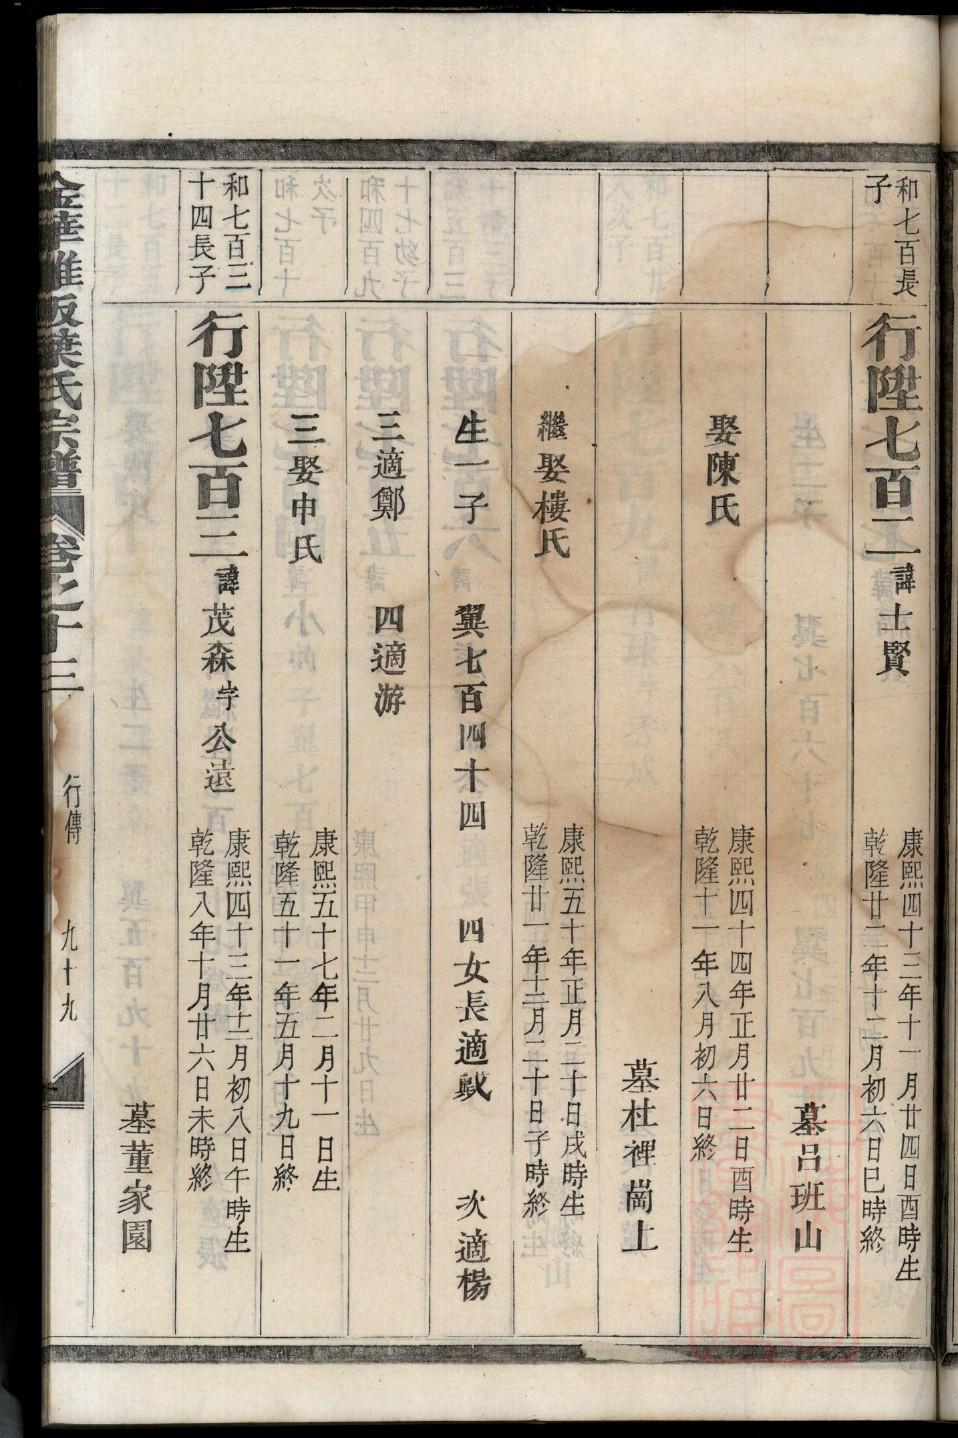 和七百長
子
行陞七百二諱士賢
康熙四十三年十一月廿四日酉時生
乾隆廿二年十二月初六日巳時終
墓呂班山
娶陳氏
康熙四十四年正月廿二日酉時生
乾隆十一年八月初六日終
墓杜裡崗上
繼娶樓氏
康熙五十年正月二十日戌時生
乾隆廿一年十二月二十日子時終
生一子 翼七百四十四 四女長適戚 次適楊
三適鄭 四適游
三娶申氏
康熙五十七年二月十一日生
乾隆五十一年五月十九日終
和七百三
十四長子
行陞七百三諱茂森字公遠
康熙四十三年十二月初八日午時生
乾隆八年十月廿六日未時終
墓董家園
金華雅畈葉氏宗譜 卷之十三 行傳 九十九